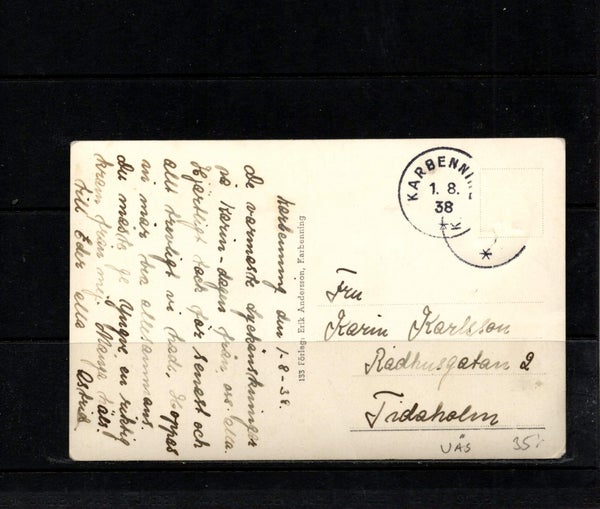 Karbenning den 1-8-38.
De varmaste lyckönskningar
på Karin-dagen från oss alla.
Hjärtligt tack för senast och
allt trevligt vi hade. Hoppas
ni mår bra allesammans.
du måste ge Yngve en riktig
kram från mig. Många häls.
till Eder alla Astrid
133 Förlag: Erik Andersson, Karbenning
KARBENNI
1. 8.
38
K
Fru
Karin Karlsson
Rådhusgatan 2
Tidaholm
VÄS
35: